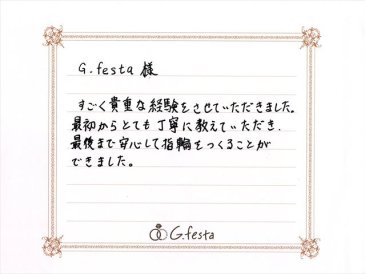 G.festa 様
すごく貴重な経験をさせていただきました。
最初からとても丁寧に教えていただき、
最後まで安心して指輪をつくることが
できました。
G.festa